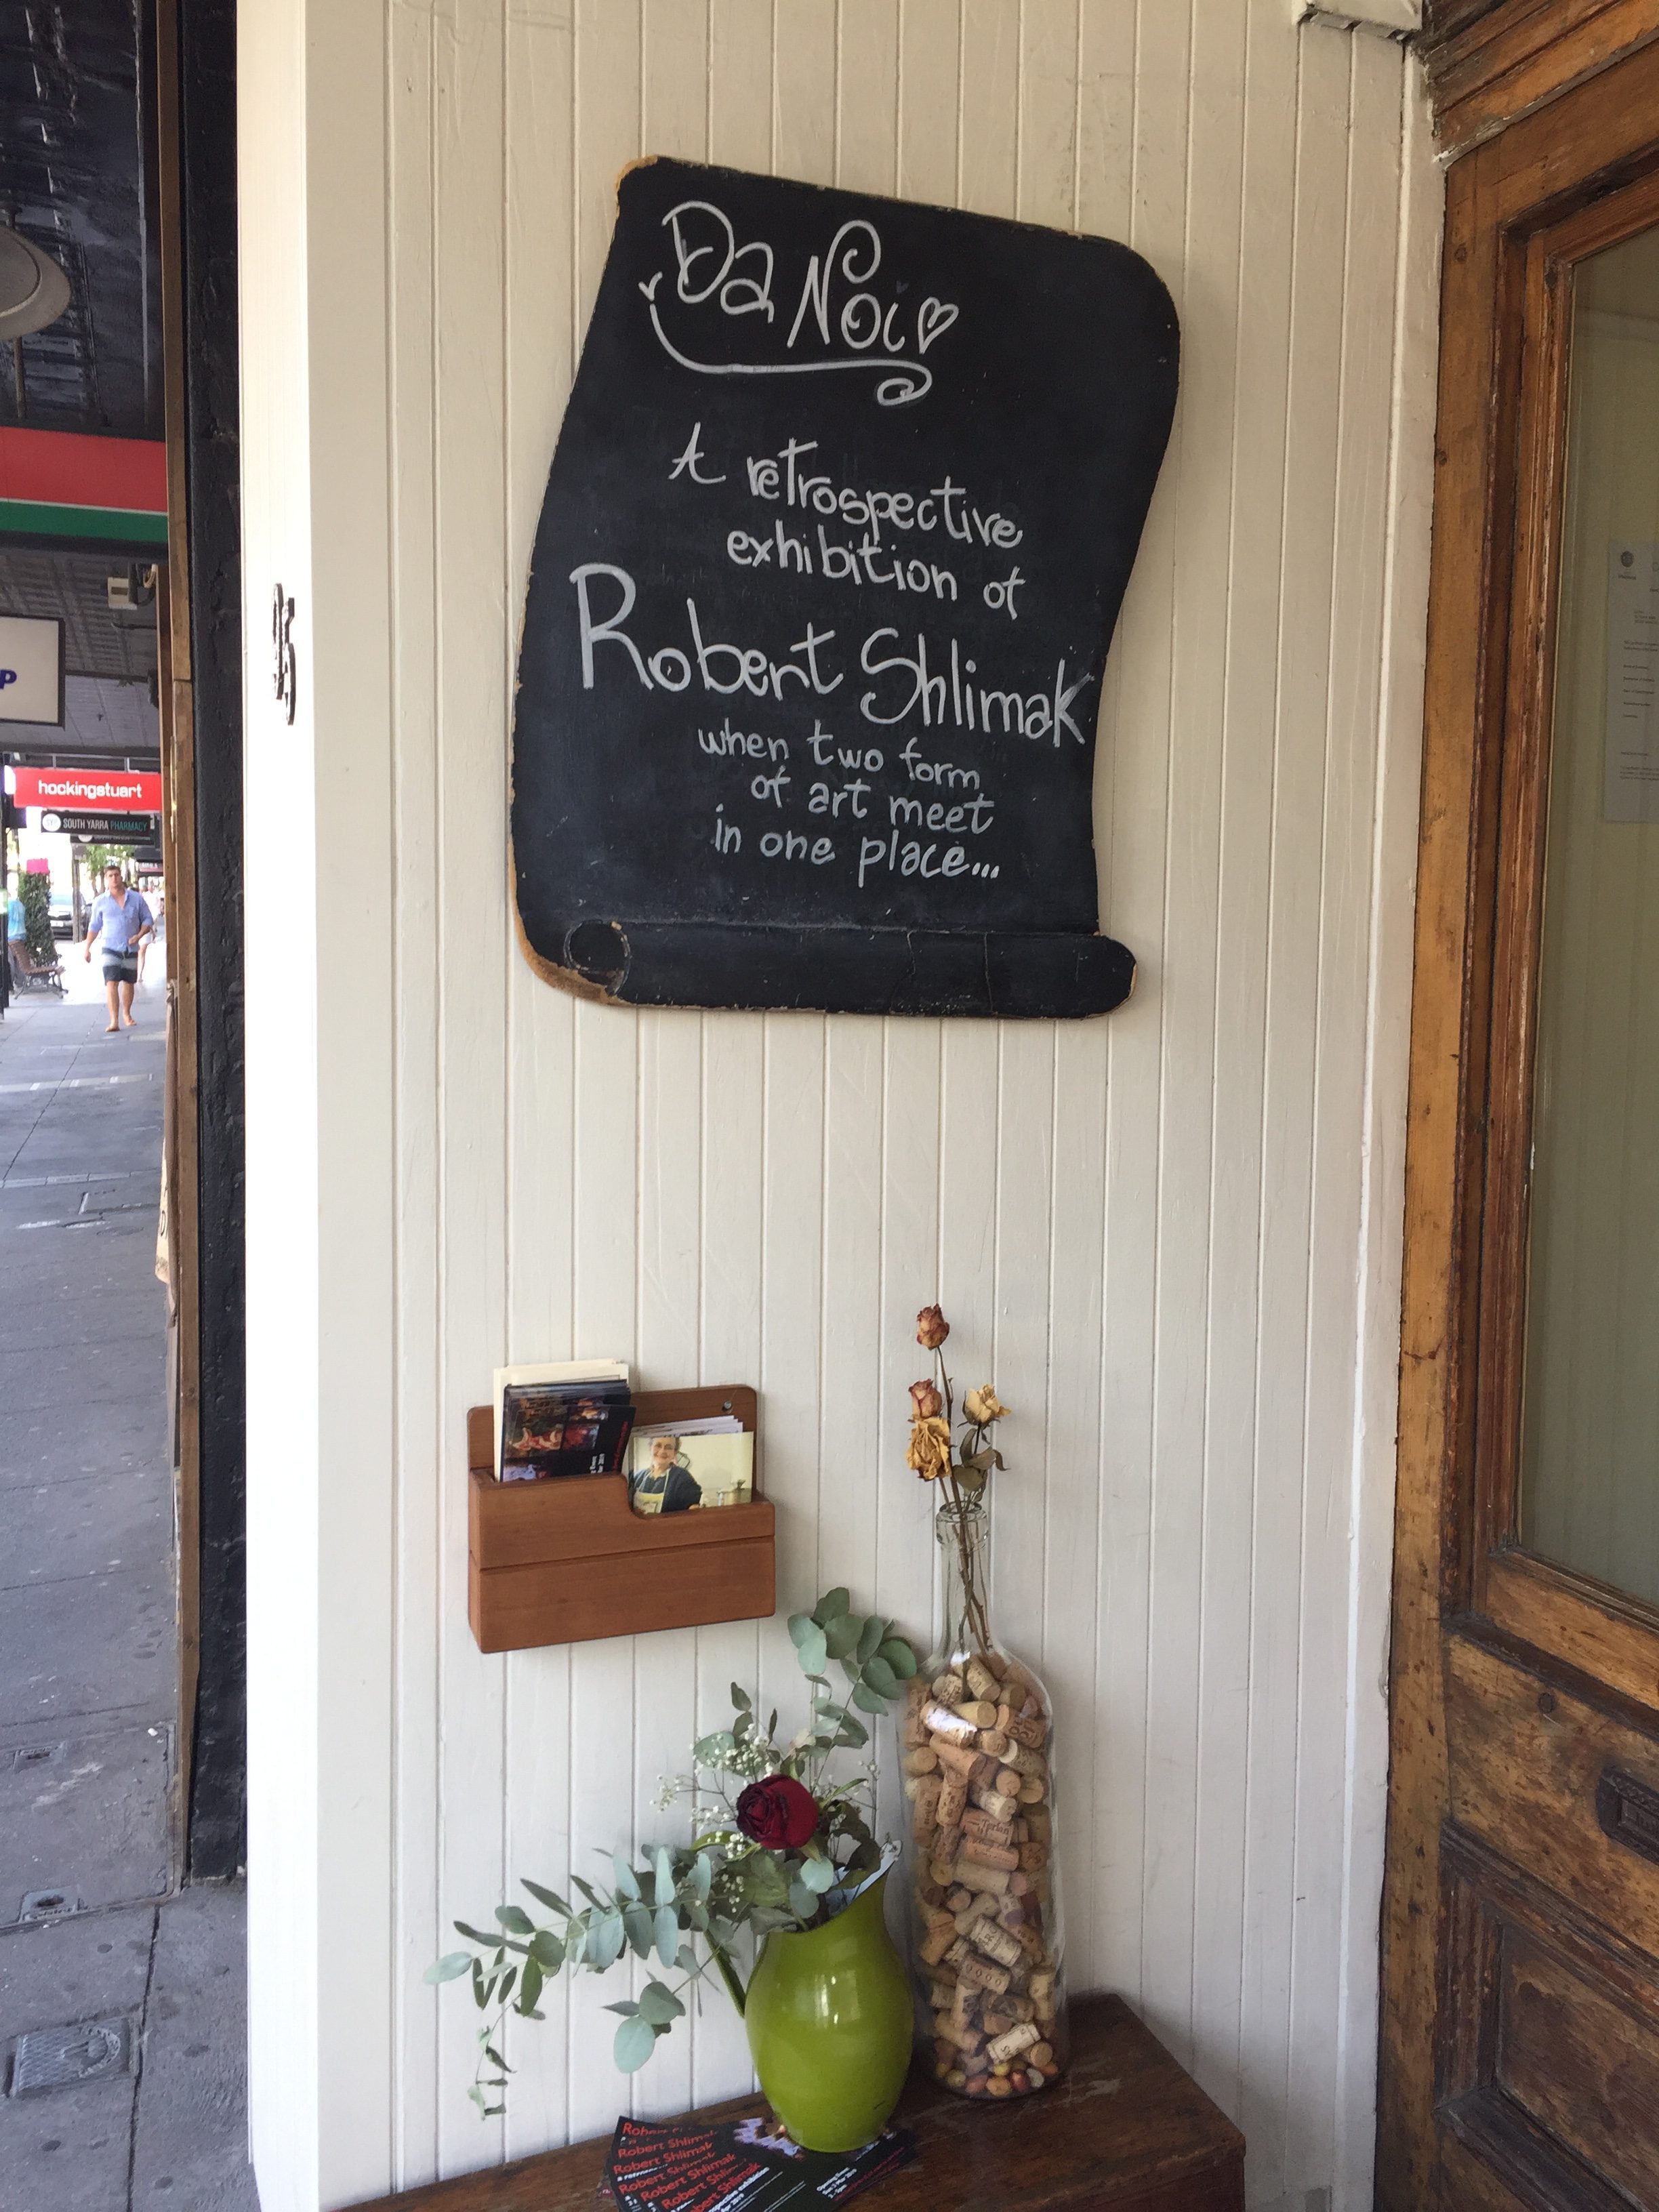 Da Noi
A retrospective
exhibition of
Robert Shlimak
when two form
of art meet
in one place...
95
P
hockingstuart
SOUTH YARRA PHARMACY
Robert Shlimak
Robert Shlimak
Robert Shlimak
Robert Shlimak